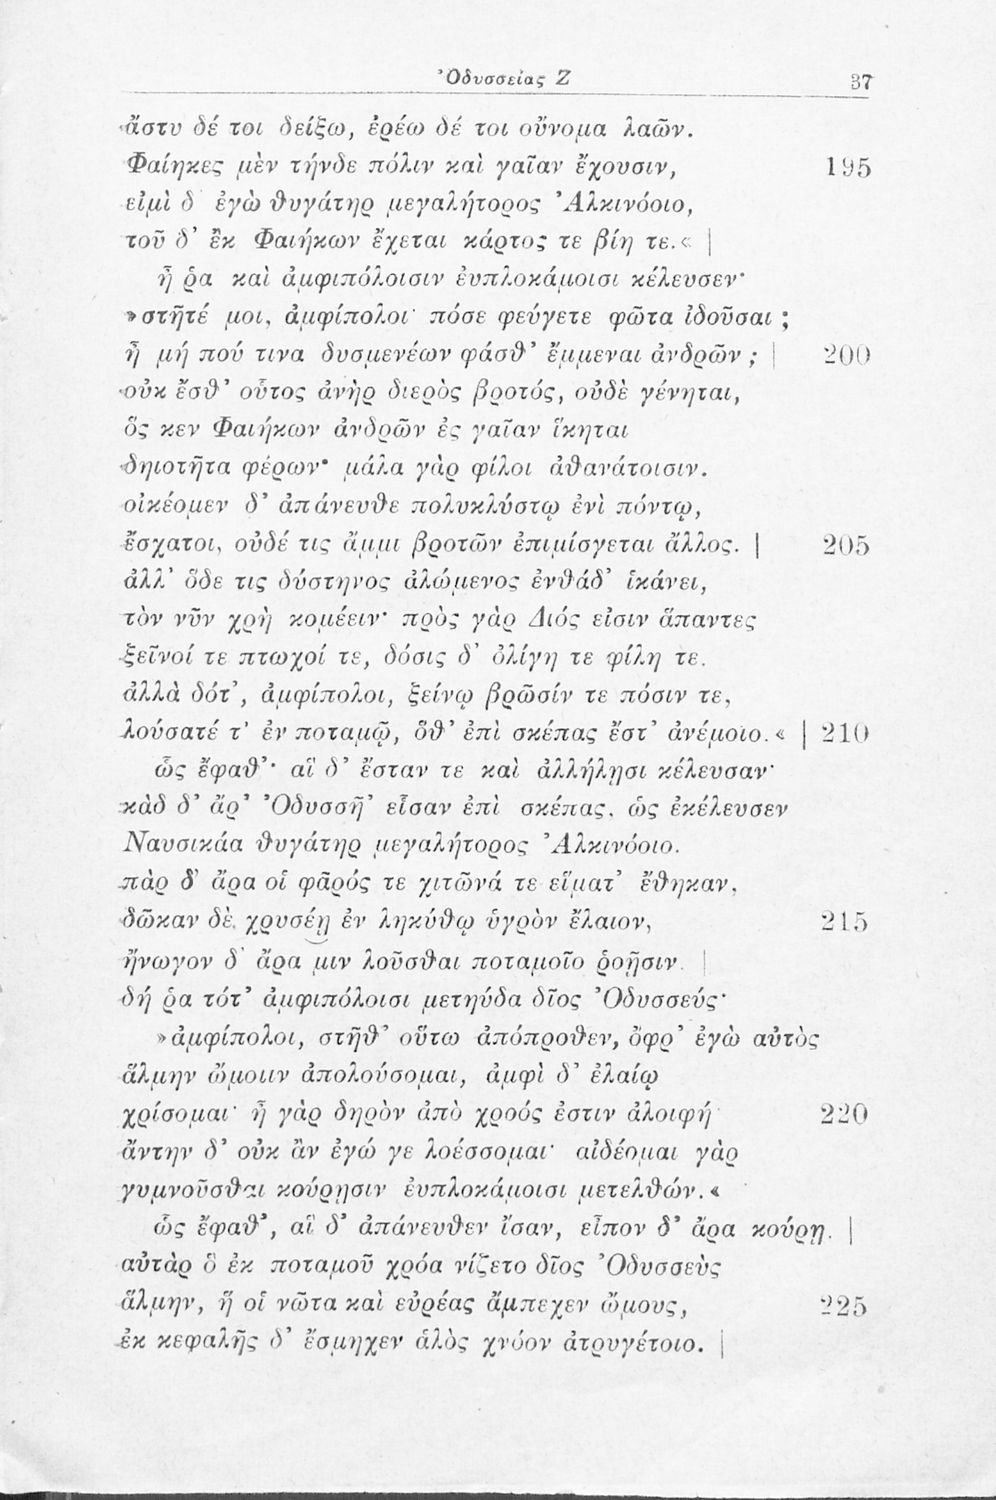 Ὀδυσσείας Ζ 37
ἄστυ δέ τοι δείξω, ἐρέω δέ τοι οὔνομα λαῶν.
Φαίηκες μὲν τήνδε πόλιν καὶ γαῖαν ἔχουσιν, 195
εἰμὶ δ' ἐγὼ θυγάτηρ μεγαλήτορος Ἀλκινόοιο,
τοῦ δ' ἐκ Φαιήκων ἔχεται κάρτος τε βίη τε.« |
ἦ ῥα καὶ ἀμφιπόλοισιν ἐυπλοκάμοισι κέλευσεν·
»στῆτέ μοι, ἀμφίπολοι· πόσε φεύγετε φῶτα ἰδοῦσαι ;
ἦ μή πού τινα δυσμενέων φάσθ' ἔμμεναι ἀνδρῶν ; | 200
οὐκ ἔσθ' οὗτος ἀνὴρ διερὸς βροτός, οὐδὲ γένηται,
ὅς κεν Φαιήκων ἀνδρῶν ἐς γαῖαν ἵκηται
δηιοτῆτα φέρων· μάλα γὰρ φίλοι ἀθανάτοισιν.
οἰκέομεν δ' ἀπάνευθε πολυκλύστῳ ἐνὶ πόντῳ,
ἔσχατοι, οὐδέ τις ἄμμι βροτῶν ἐπιμίσγεται ἄλλος. | 205
ἀλλ' ὅδε τις δύστηνος ἀλώμενος ἐνθάδ' ἱκάνει,
τὸν νῦν χρὴ κομέειν· πρὸς γὰρ Διός εἰσιν ἅπαντες
ξεῖνοί τε πτωχοί τε, δόσις δ' ὀλίγη τε φίλη τε.
ἀλλὰ δότ', ἀμφίπολοι, ξείνῳ βρῶσίν τε πόσιν τε,
λούσατέ τ' ἐν ποταμῷ, ὅθ' ἐπὶ σκέπας ἔστ' ἀνέμοιο.« | 210
ὣς ἔφαθ'· αἳ δ' ἔσταν τε καὶ ἀλλήλῃσι κέλευσαν·
κὰδ δ' ἄρ' Ὀδυσσῆ' εἷσαν ἐπὶ σκέπας, ὡς ἐκέλευσεν
Ναυσικάα θυγάτηρ μεγαλήτορος Ἀλκινόοιο.
πὰρ δ' ἄρα οἱ φᾶρός τε χιτῶνά τε εἵματ' ἔθηκαν,
δῶκαν δὲ χρυσέῃ ἐν ληκύθῳ ὑγρὸν ἔλαιον, 215
ἤνωγον δ' ἄρα μιν λοῦσθαι ποταμοῖο ῥοῇσιν. |
δή ῥα τότ' ἀμφιπόλοισι μετηύδα δῖος Ὀδυσσεύς·
»ἀμφίπολοι, στῆθ' οὕτω ἀπόπροθεν, ὄφρ' ἐγὼ αὐτὸς
ἅλμην ὤμοιιν ἀπολούσομαι, ἀμφὶ δ' ἐλαίῳ
χρίσομαι· ἦ γὰρ δηρὸν ἀπὸ χροός ἐστιν ἀλοιφή· 220
ἄντην δ' οὐκ ἂν ἐγώ γε λοέσσομαι· αἰδέομαι γὰρ
γυμνοῦσθαι κούρῃσιν ἐυπλοκάμοισι μετελθών.«
ὣς ἔφαθ', αἳ δ' ἀπάνευθεν ἴσαν, εἶπον δ' ἄρα κούρῃ. |
αὐτὰρ ὃ ἐκ ποταμοῦ χρόα νίζετο δῖος Ὀδυσσεὺς
ἅλμην, ἥ οἱ νῶτα καὶ εὐρέας ἄμπεχεν ὤμους, 225
ἐκ κεφαλῆς δ' ἔσμηχεν ἁλὸς χνόον ἀτρυγέτοιο. |